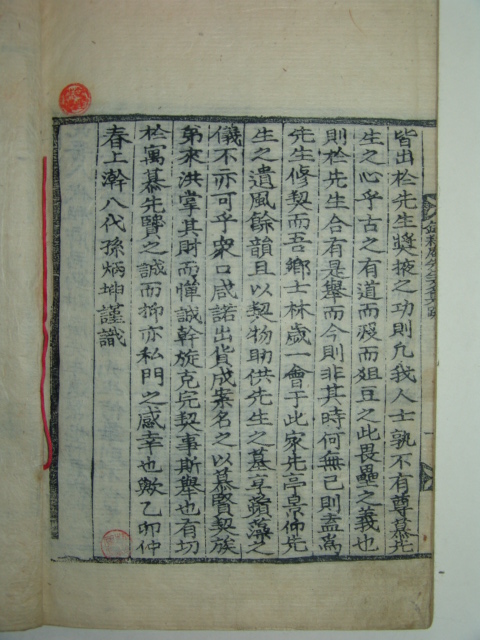 皆出於先生奬掖之功則凡我人士孰不有尊慕先
生之心乎古之有道而歿而俎豆之此畏壘之義也
則於先生合有是舉而今則非其時何無已則盍爲
先生修契而吾鄉士林歲一會于此家先亭景仰先
生之遺風餘韻且以契物助供先生之墓享蘋藻之
儀不亦可乎衆口咸諾出貲成案名之以慕賢契族
弟來洪掌其財而憚誠幹旋克完契事斯舉也有切
於寓慕先賢之誠而抑亦私門之感幸也歟乙卯仲
春上澣八代孫炳坤謹識